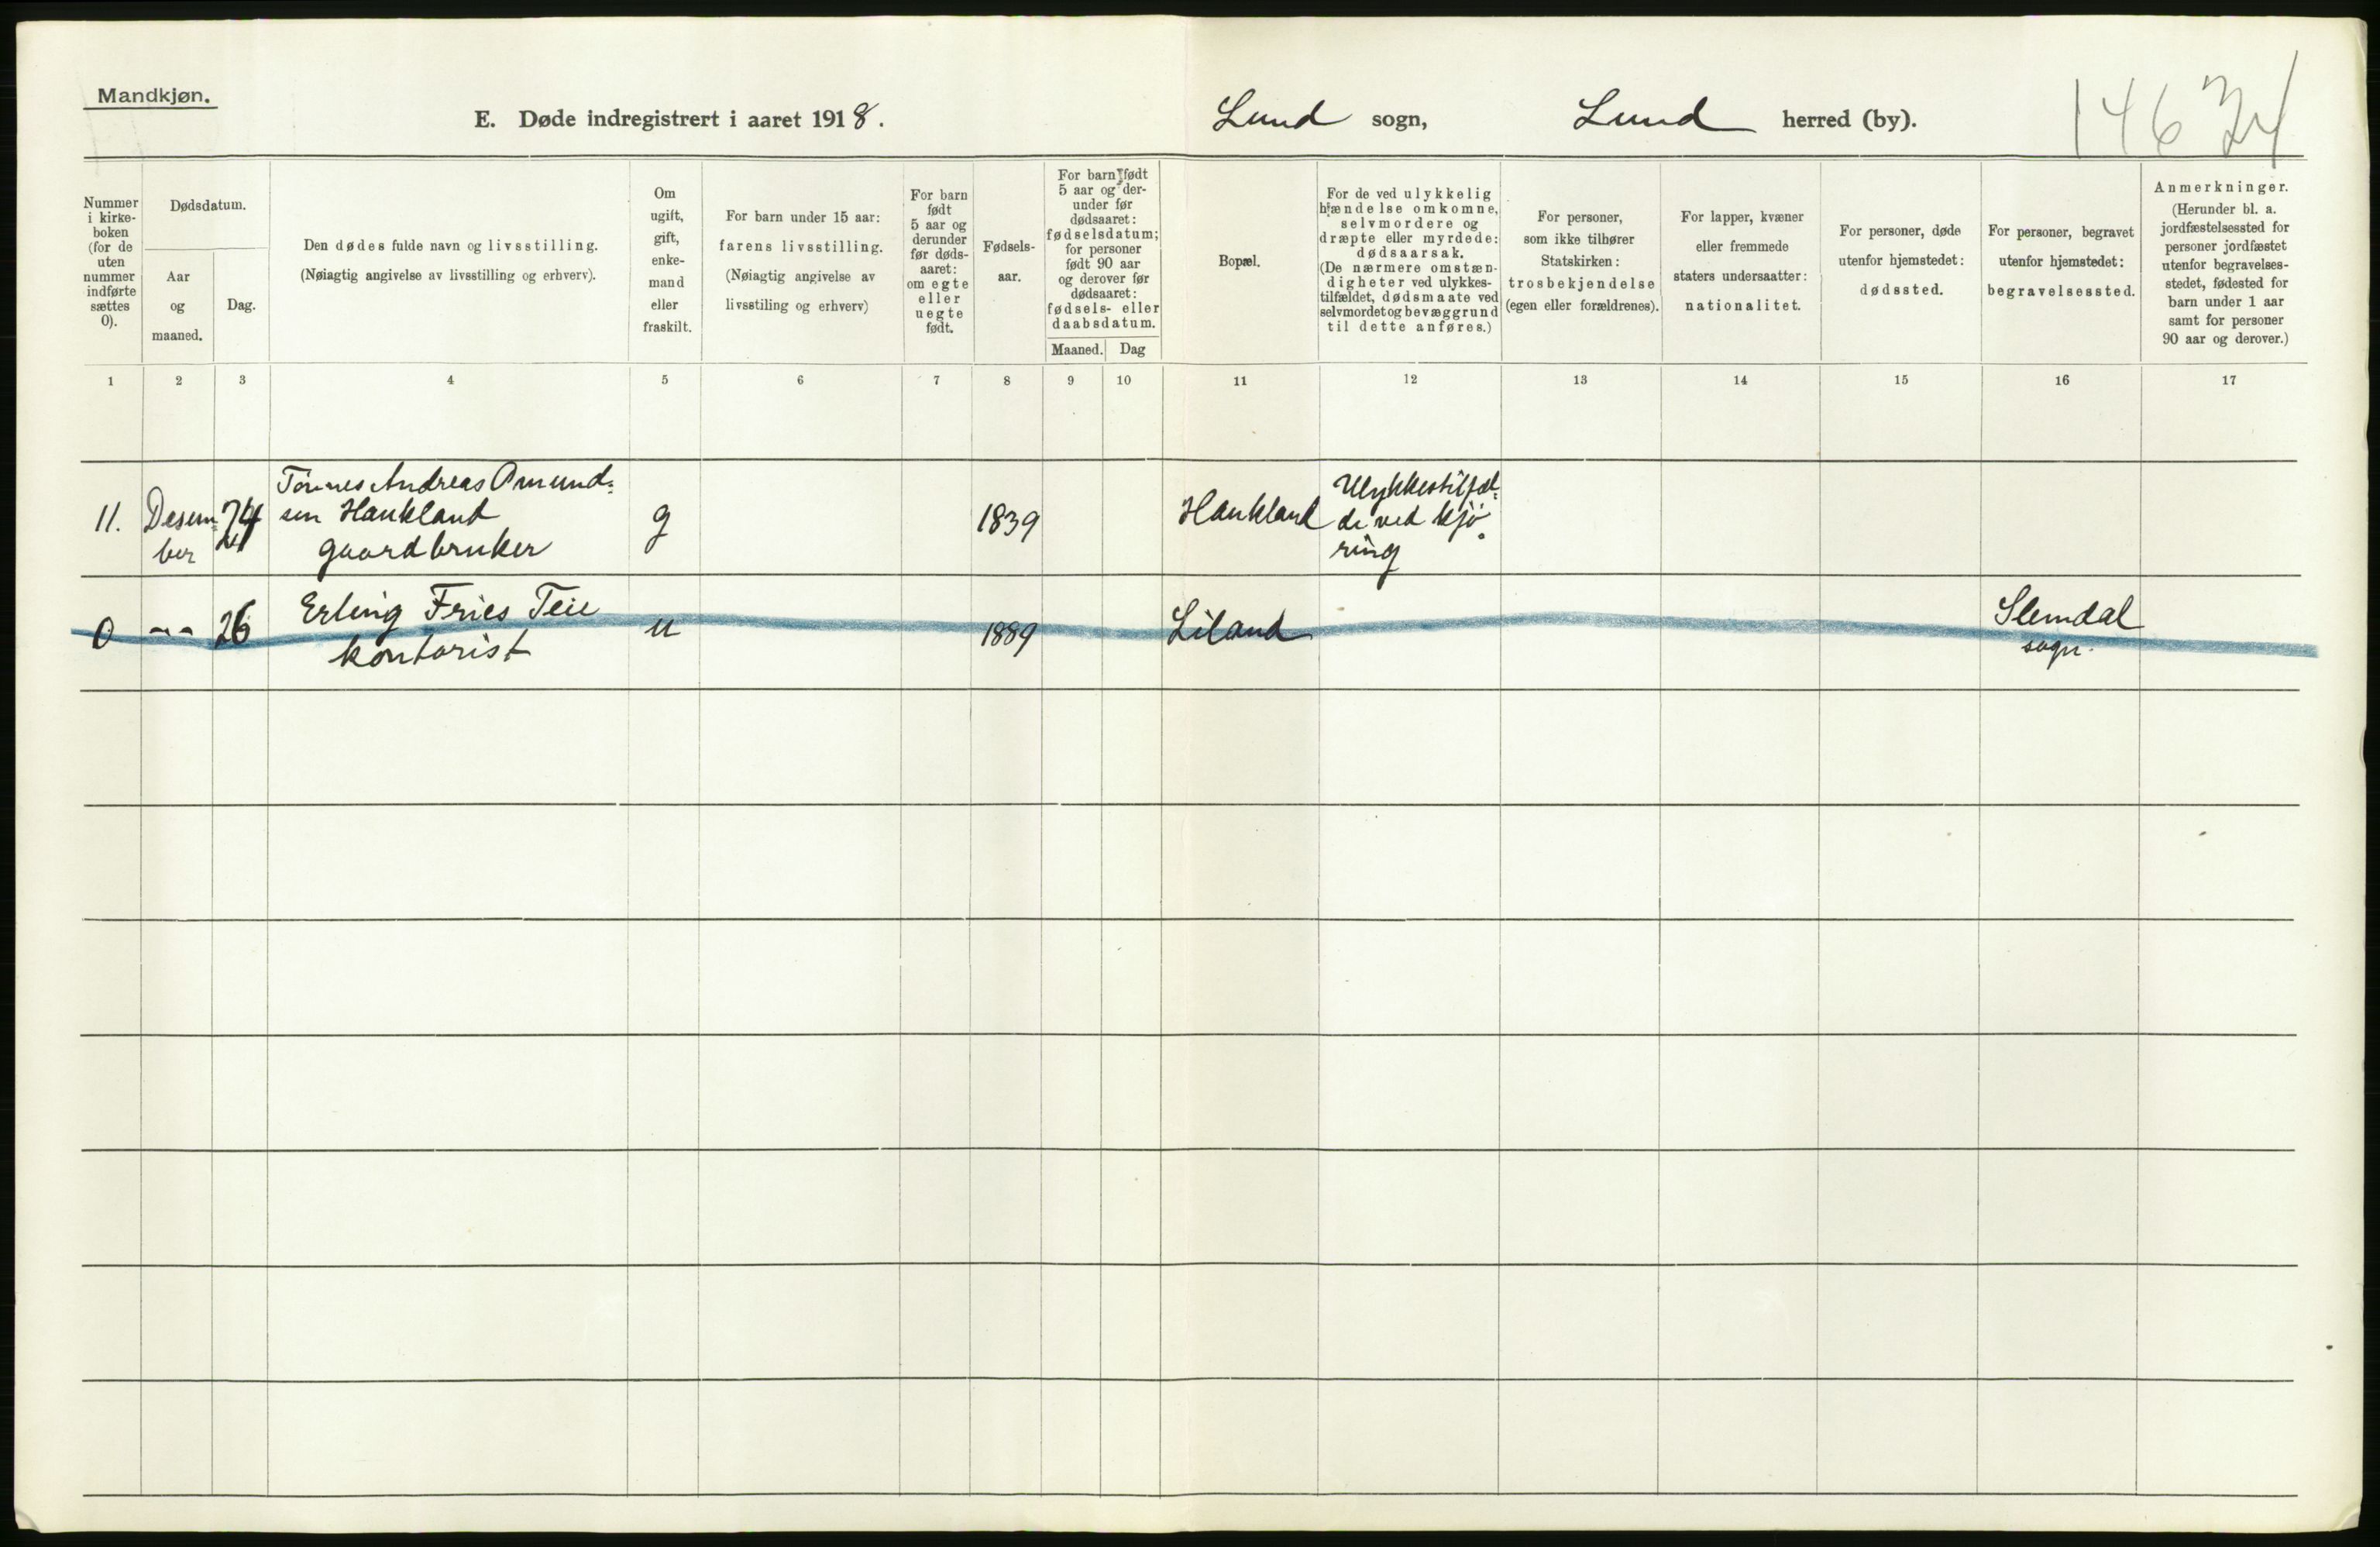 Mandkjøn.
E. Døde indregistrert i aaret 1918.
Lund sogn, Lund herred (by).
146
Nummer i kirke-boken (for de uten nummer indførte sættes 0).
Dødsdatum.
Aar og maaned.
Dag.
Den dødes fulde navn og livsstilling.
(Nøiagtig angivelse av livsstilling og erhverv).
Om ugift, gift, enke-mand eller fraskilt.
For barn under 15 aar:
farens livsstilling.
(Nøiagtig angivelse av
livsstiling og erhverv)
For barn født 5 aar og derunder før døds-aaret: om egte eller uegte født.
Fødsels-aar.
For barn født 5 aar og der-under før dødsaaret: fødselsdatum; for personer født 90 aar og derover før dødsaaret: fødsels- eller daabsdatum.
Maaned. Dag
Bopæl.
For de ved ulykkelig hændelse omkomne, selvmordere og dræpte eller myrdede: dødsaarsak.
(De nærmere omstæn-digheter ved ulykkes-tilfældet, dødsmaate ved selvmordet og bevæggrund til dette anføres.)
For personer, som ikke tilhører Statskirken: trosbekjendelse (egen eller forældrenes).
For lapper, kvæner eller fremmede staters undersaatter: nationalitet.
For personer, døde utenfor hjemstedet: dødssted.
For personer, begravet utenfor hjemstedet: begravelsessted.
Anmerkninger.
(Herunder bl. a. jordfæstelsessted for personer jordfæstet utenfor begravelses-stedet, fødested for barn under 1 aar samt for personer 90 aar og derover.)
1 2 3 4 5 6 7 8 9 10 11 12 13 14 15 16 17
Tønnes Andreas Omund= Ulykkestilfæl=
11. Desem= sen Haukland g 1839 Haukland de ved kjø
ber gaardbruker ring
Erling Fries Teie Slemdal
0 -"- 26 kontorist u 1889 Liland sogn.